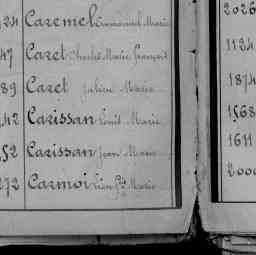 724 Caremel Emmanuel Marie
47 Caret Charles Marie François
89 Caret Julien Marie
42 Carissan Louis Marie
52 Carissan Jean Marie
272 Carmoi Marie
2026
1124
1874
1568
1611
2000